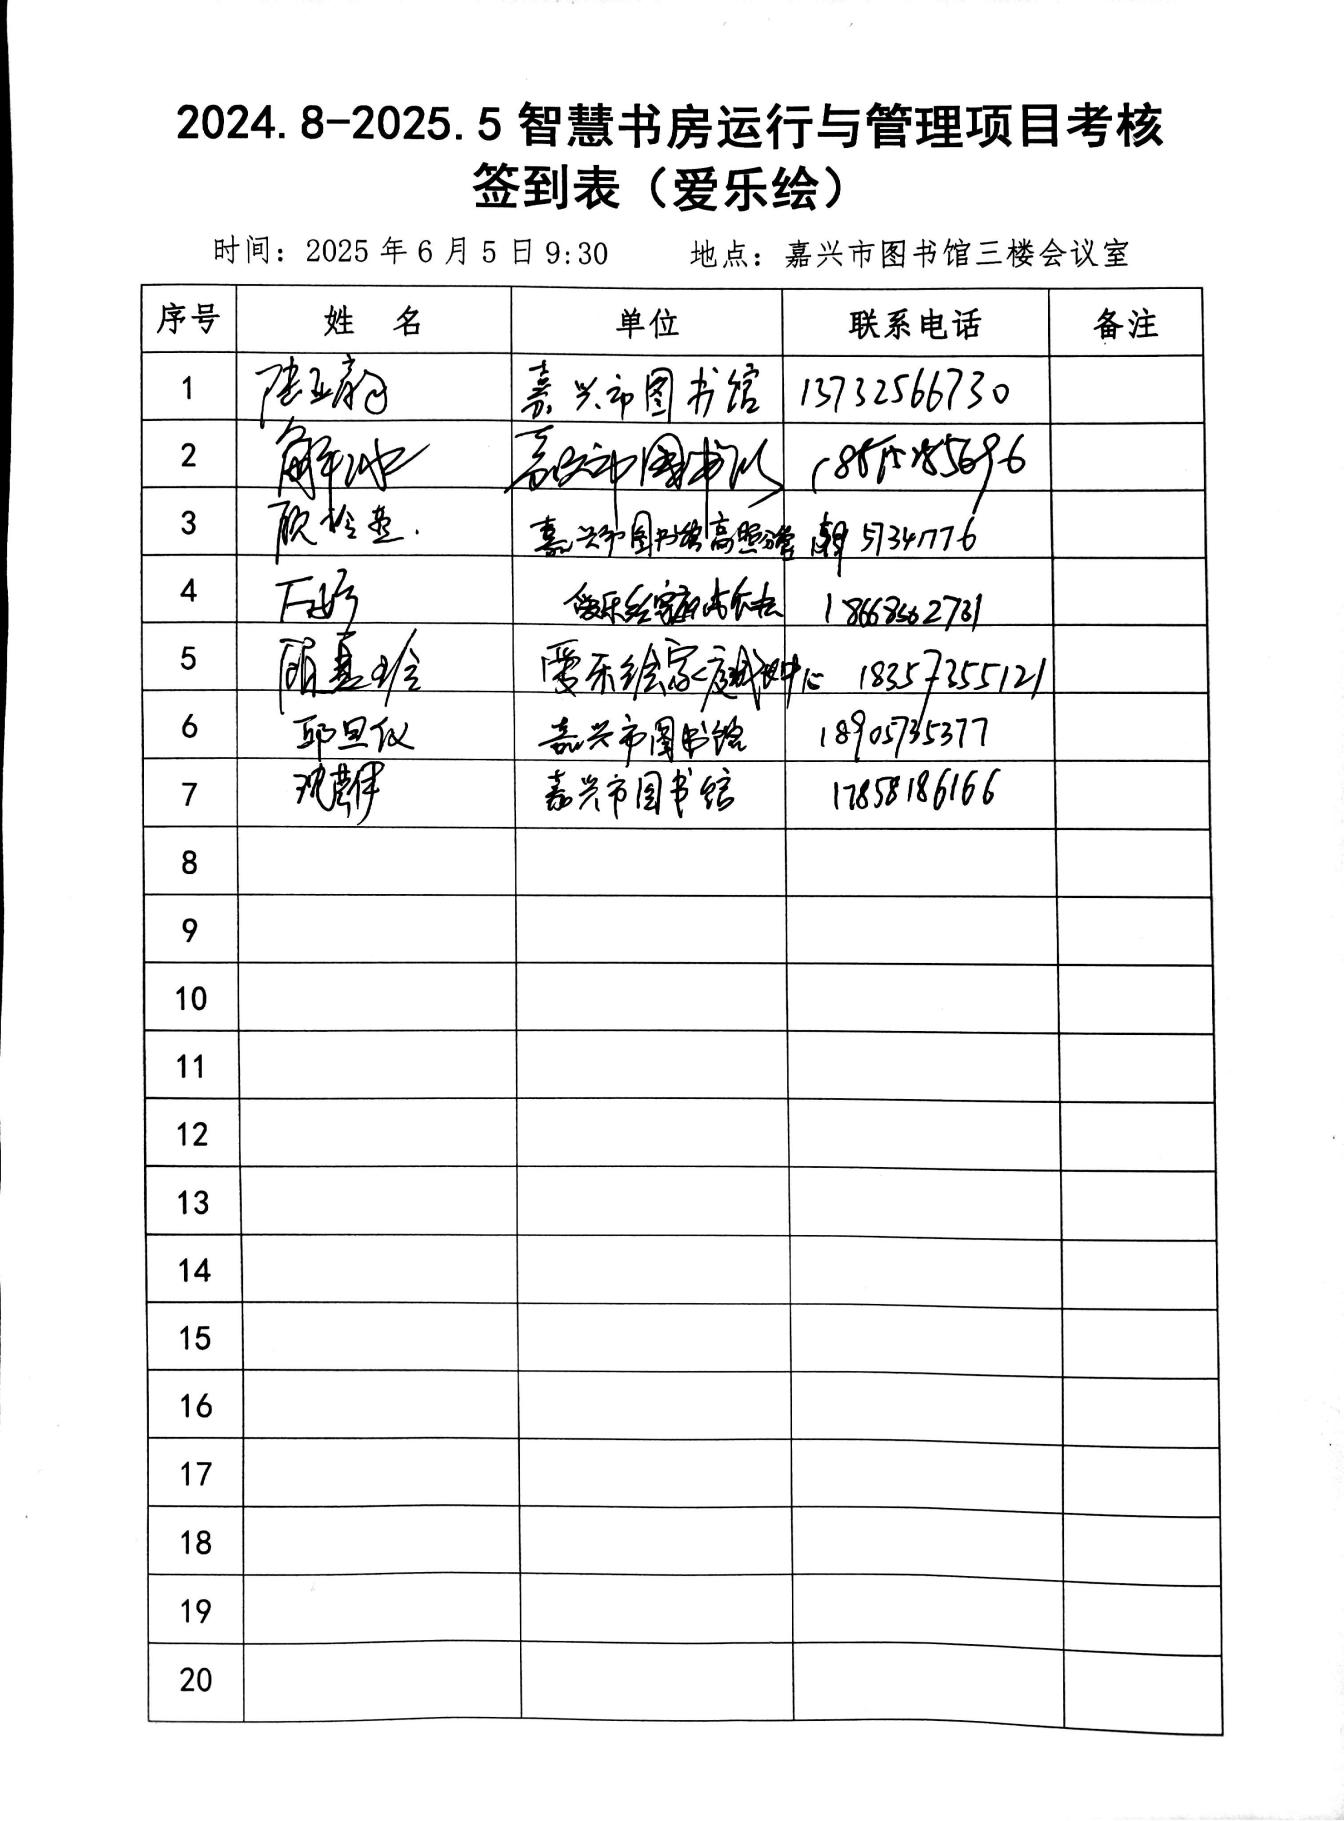 2024.8-2025.5智慧书房运行与管理项目考核
签到表（爱乐绘）
时间：2025年6月5日9:30 地点：嘉兴市图书馆三楼会议室
序号 姓 名 单位 联系电话 备注
1 陆亚韵 嘉兴市图书馆 13732566730
2 解 嘉兴市图书馆
3 顾 嘉兴市图书馆高照分馆
4 爱乐绘家庭
5 爱乐绘家庭成长中心 18357355121
6 邱旦仪 嘉兴市图书馆 18905735377
7 沈 嘉兴市图书馆 17858186166
8
9
10
11
12
13
14
15
16
17
18
19
20